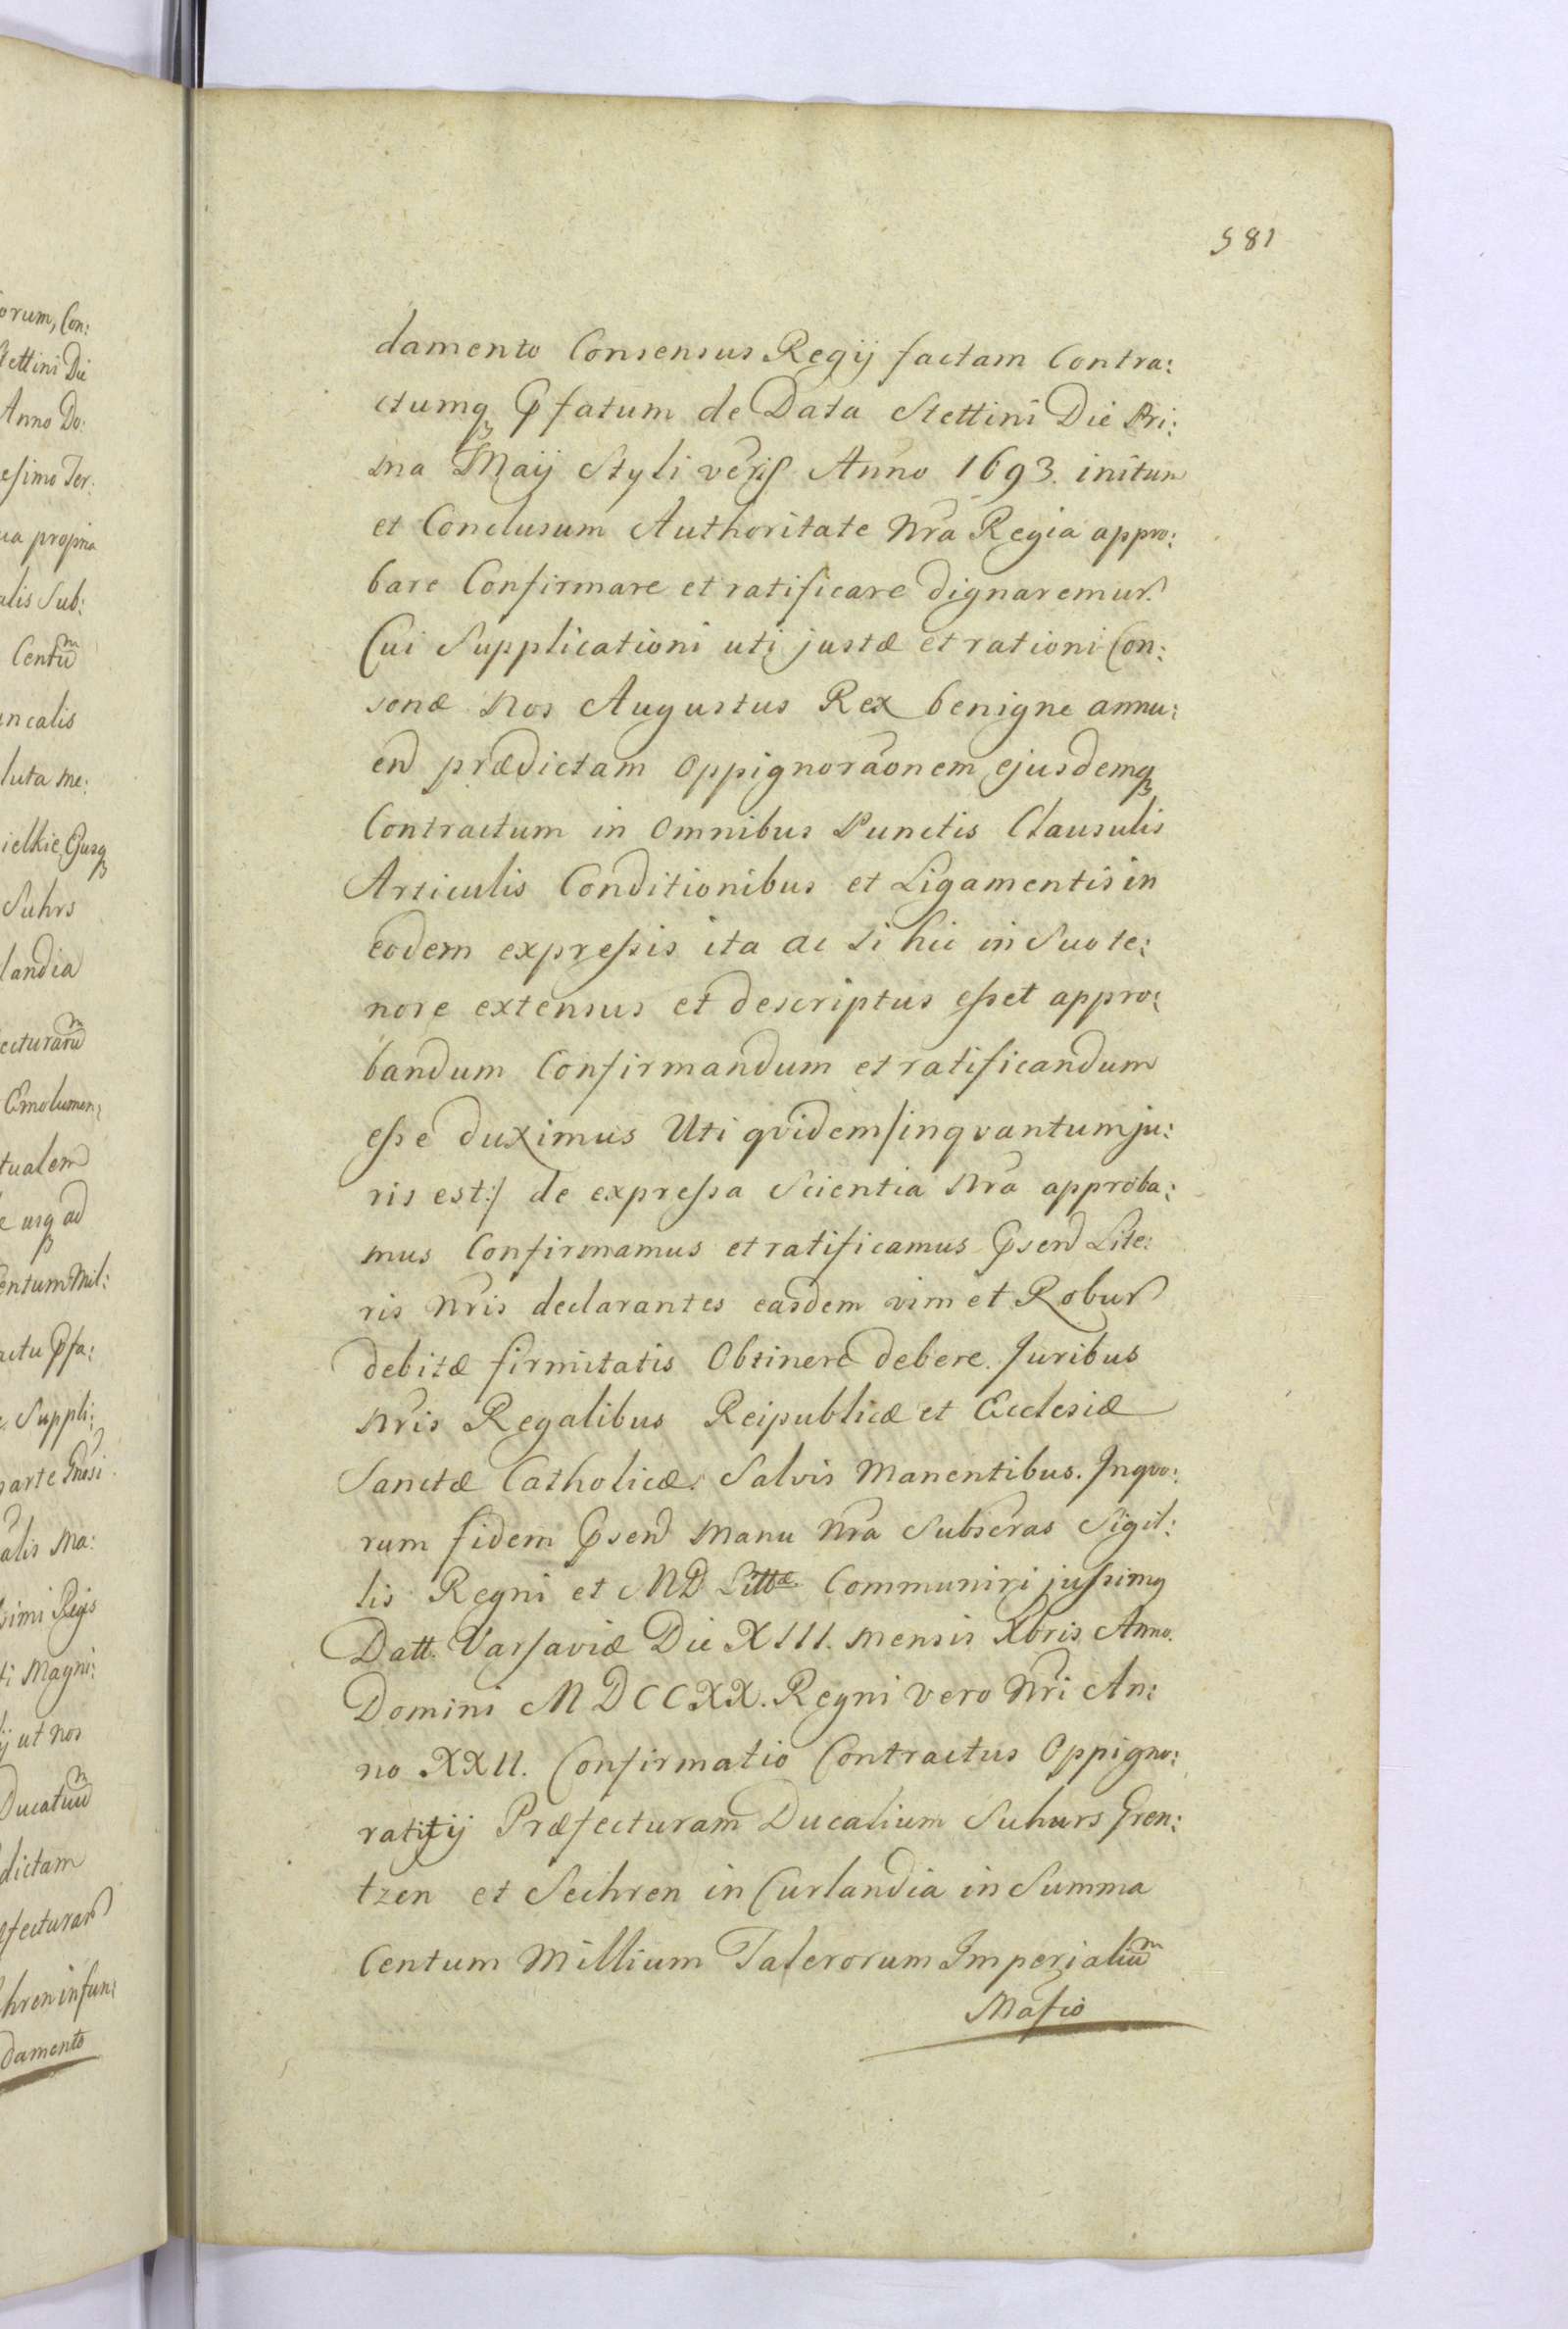 581
damento Consensus Regij factam Contra:
ctumq Pfatum de Data Stettini Die Pri:
ma Maij Styli veris Anno 1693. initum
et Conclusum Authoritate Nra Regia appro:
bare Confirmare et ratificare dignaremur.
Cui Supplicationi uti justæ et rationi Con:
sonæ Nos Augustus Rex benigne annu:
en prædictam Oppignoraonem ejusdemq
Contractum in Omnibus Punctis Clausulis
Articulis Conditionibus et Ligamentis in
eodem expressis ita ac si hic in Suo te:
nore extensus et descriptus esset appro:
bandum Confirmandum et ratificandum
esse duximus Uti qvidem /inqvantum ju:
ris est:/ de expressa Scientia Nra approba:
mus Confirmamus et ratificamus Psen Lite:
ris Nris declarantes easdem vim et Robur
debitæ firmitatis Obtinere debere. Juribus
Nris Regalibus Reipublicæ et Ecclesiæ
Sanctæ Catholicæ Salvis Manentibus. In qvo:
rum fidem Psen Manu Nra Subscras Sigil:
lis Regni et MD Littæ Communiri jussimq
Datt. Varsaviæ Die XIII. Mensis Xbris Anno.
Domini MDCCXX. Regni vero Nri An:
no XXII. Confirmatio Contractus Oppigno:
ratitij Præfecturam Ducalium Suhurs Gren:
tzen et Sechren in Curlandia in Summa
Centum Millium Talerorum Imperialium
orum, Con:
Stettini Die
Anno Do:
esimo Ter:
propria
alis Sub:
Centum
ncalis
luta me:
ielkie Ejusq
Suhrs
landia
ecturarum
Emolumen:
tualem
usq ad
entum Mil:
actu Pfa:
Suppli:
parte
alis Ma:
simi Regis
ti Magni:
ij ut nos
Ducatuum
dictam
fecturar
hren in fun:
damento